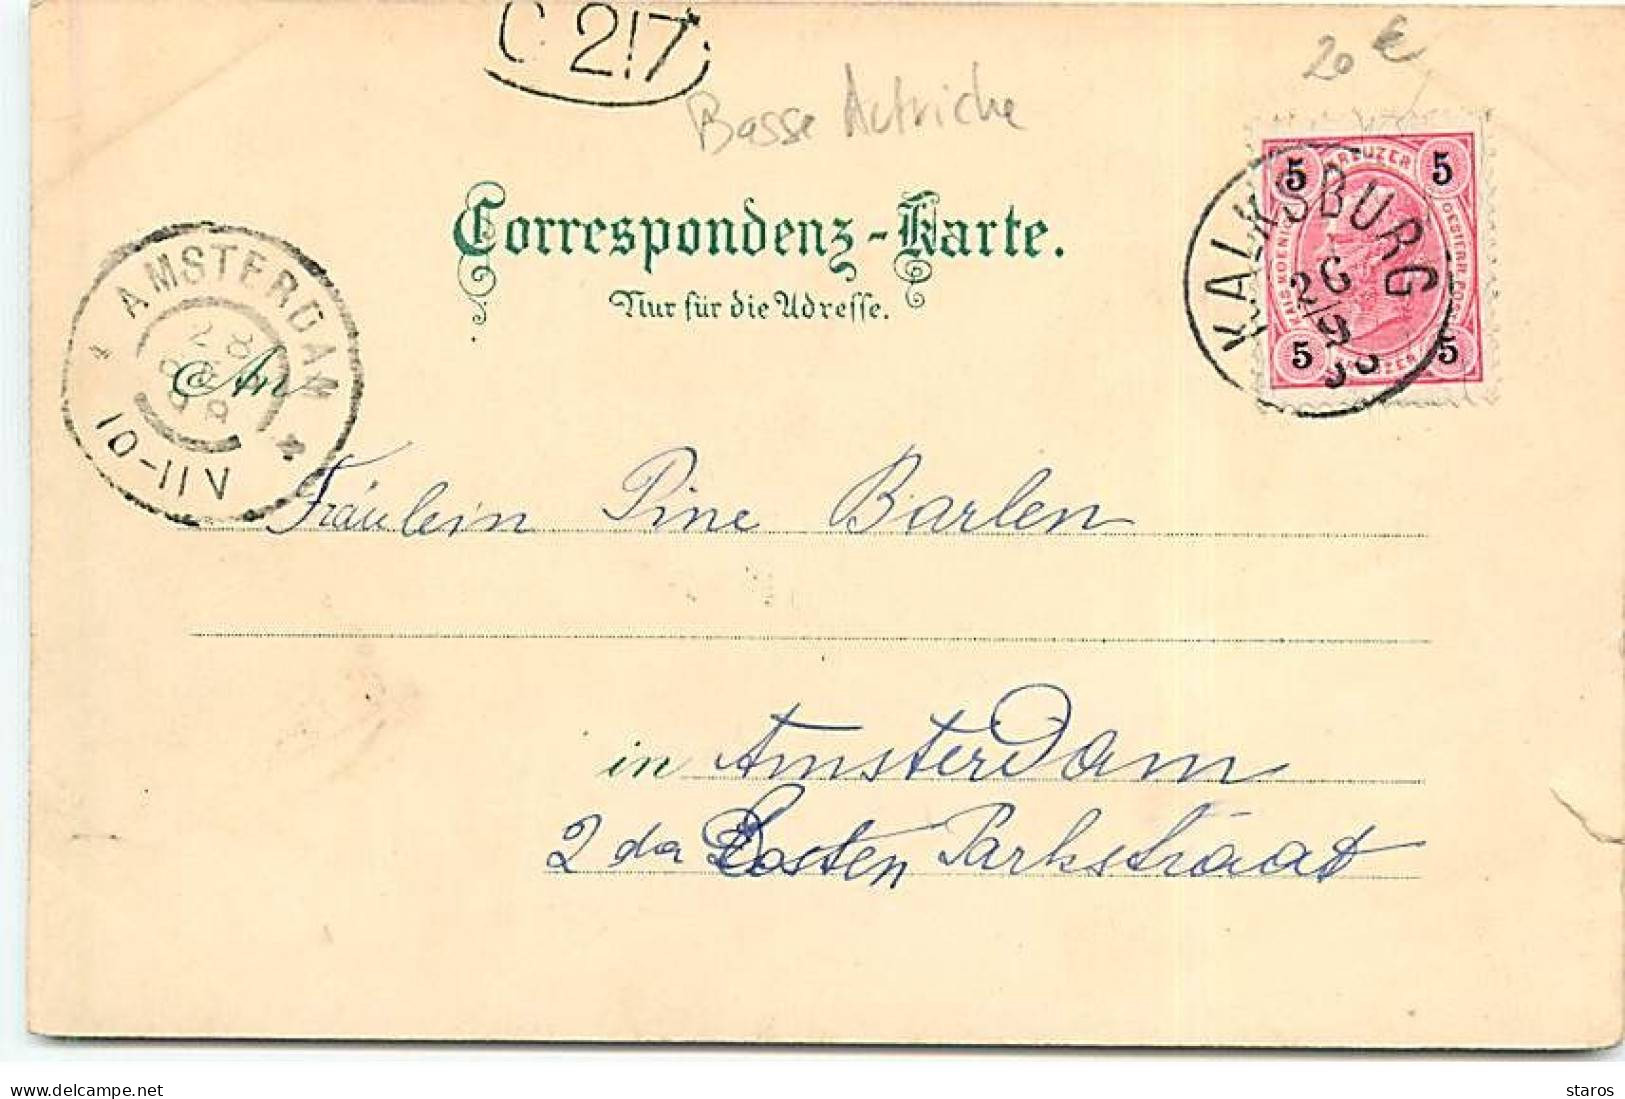 C 217
20 €
Basse Autriche
Correspondenz-Karte.
Nur für die Adresse.
An
KALKSBURG
26/9
5 KREUZER 5
KAIS. KOENIG. OESTERR. POST
5 KREUZER 5
AMSTERDAM
28
98
10-11 N
Fräulein Pine Barlen
in Amsterdam
2da Oosten Parkstraat
delcampe.net
staros